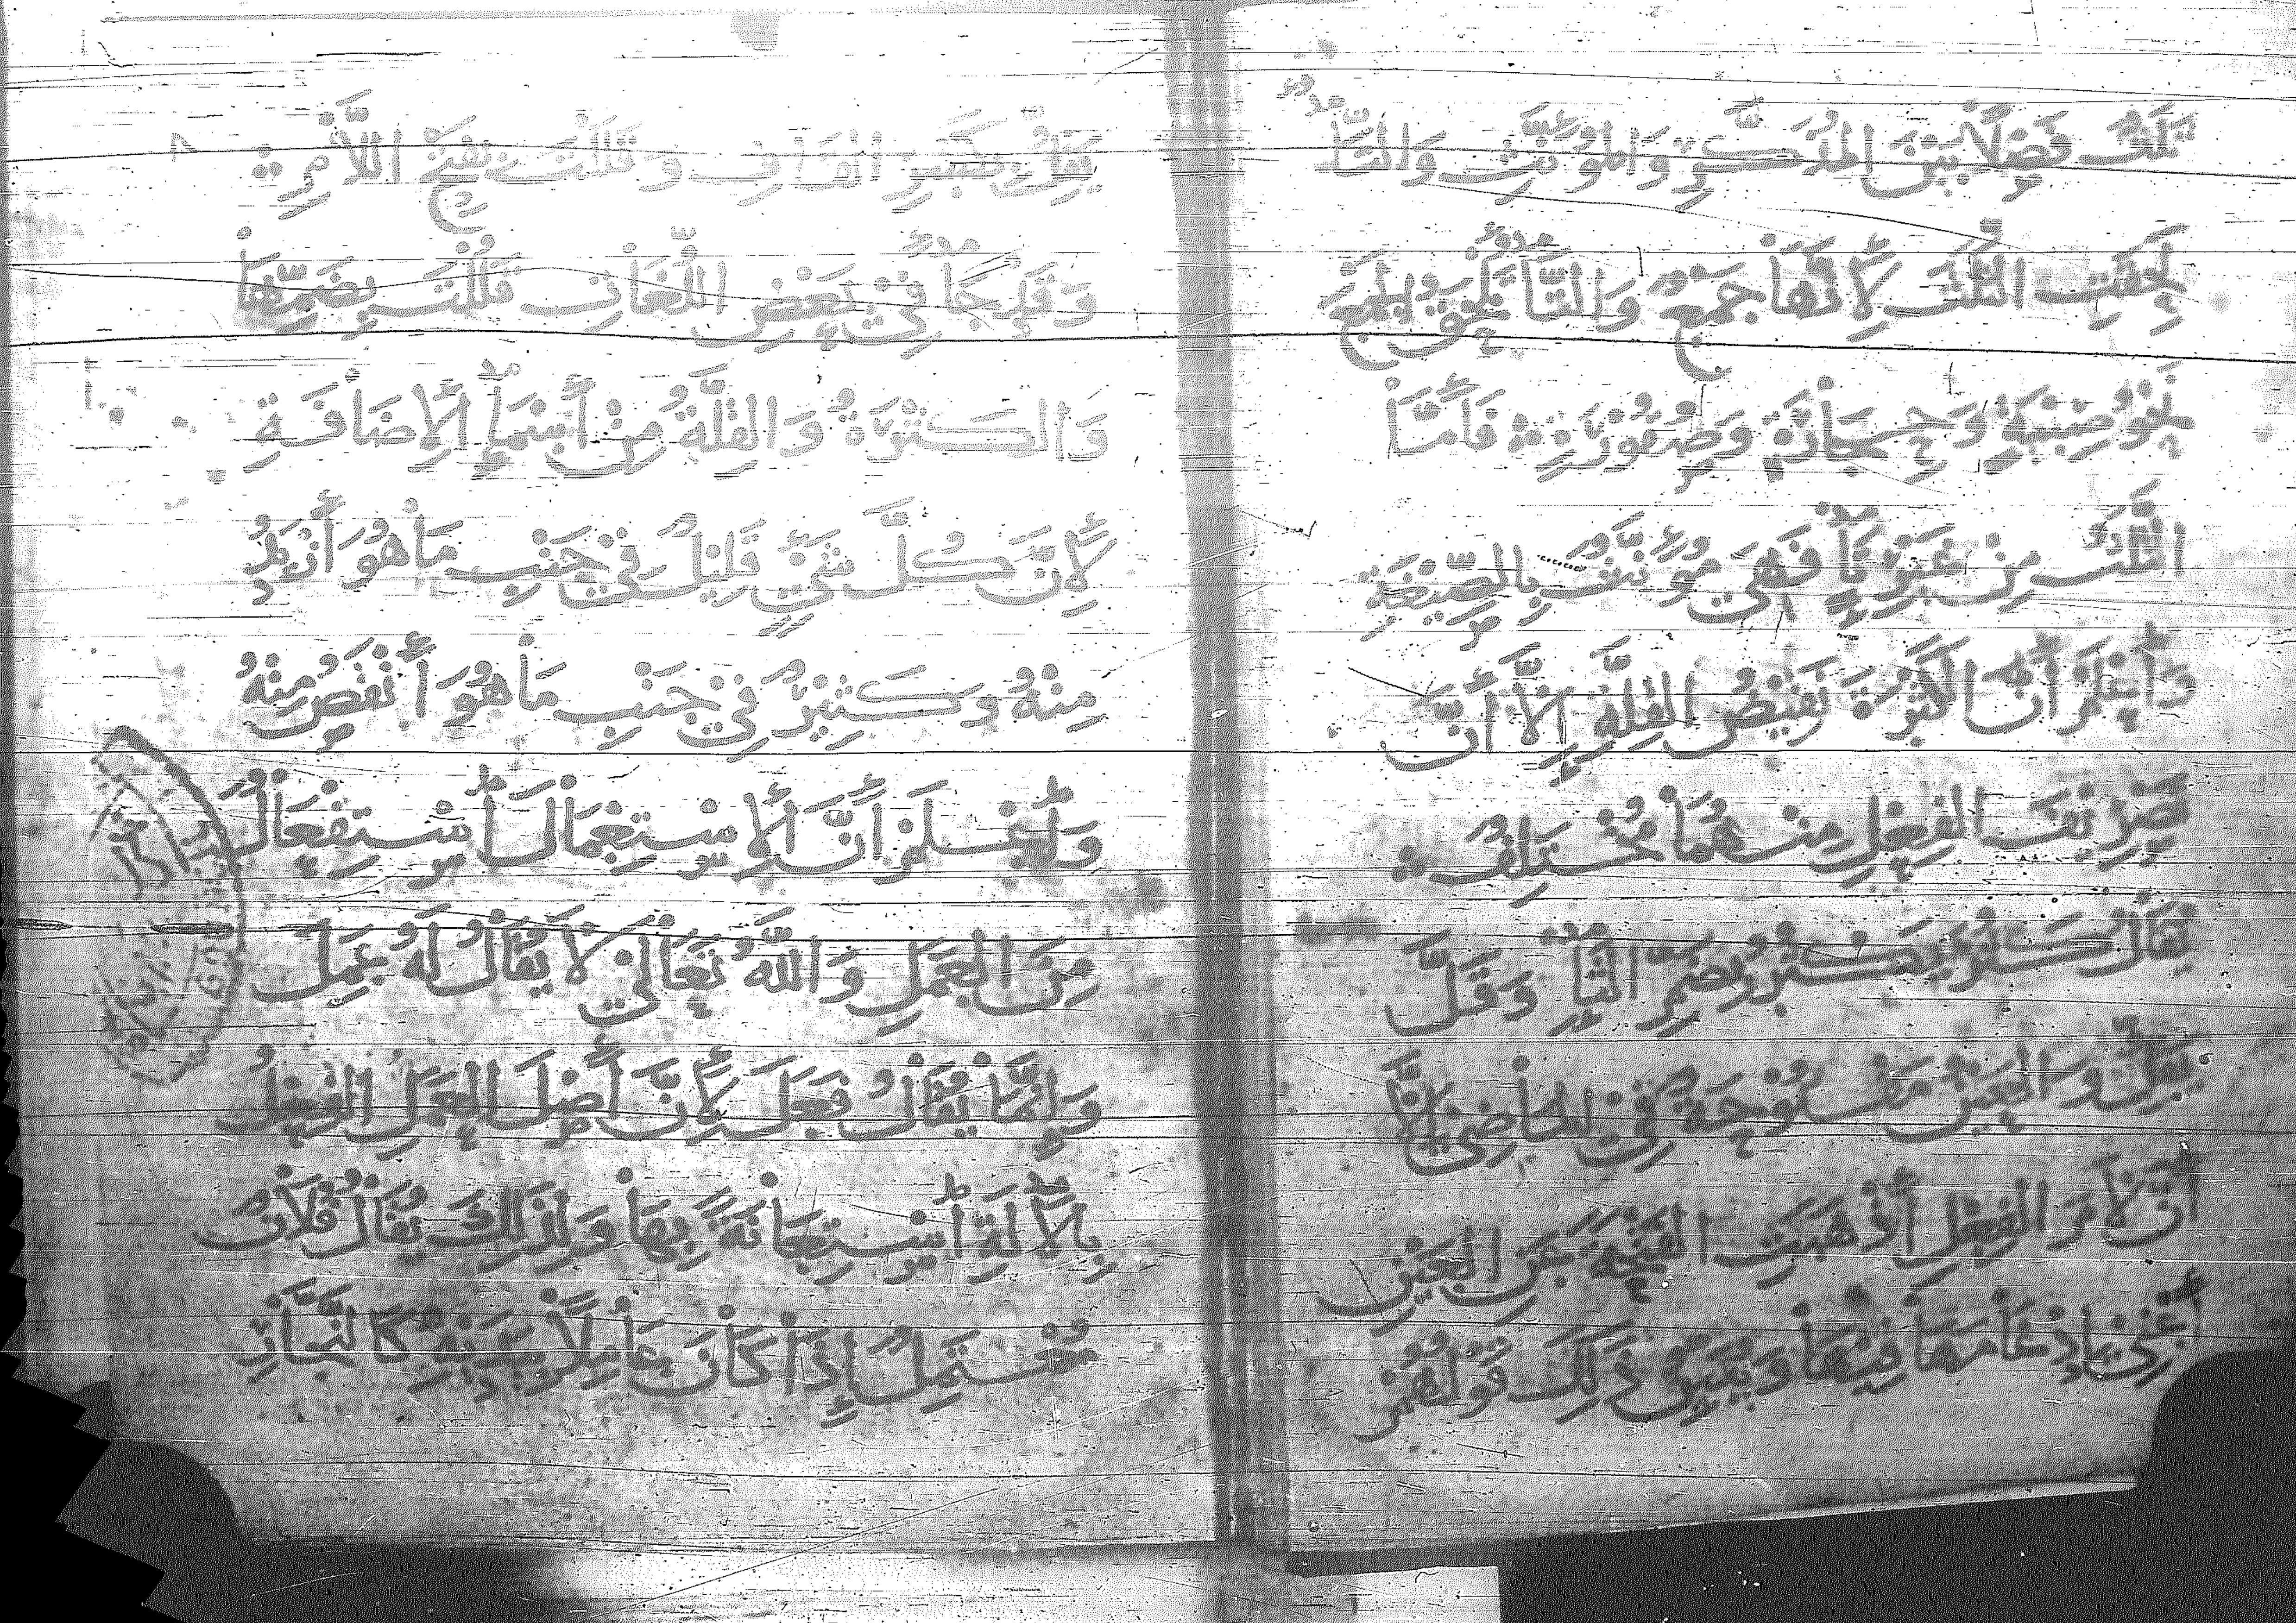 ثلث فصلا بين المذكر والمؤنث والتا
لحقت الثلث لأنها جمع والتا تلحق الجمع
نحو صبية وحجارة وصقورة فأما
الثلث من غير تا فهي مؤنث بالصيغة
واعلم أن الكثرة نقيض القلة إلا أن
تصريف الفعل منهما مختلف
يقال كثر يكثر بضم الثا وقل
يقل والعين مفتوحة في الماضي إلا
أن لام الفعل أذهبت الفتحة عن العين
أعني بادغامها فيها ويبين ذلك قولهم
يقل بكسر القاف وقللت بفتح اللام
وقد جا في بعض اللغات قللت بضمها
والكثرة والقلة من أسما الإضافة
لأن كل شي قليل في جنب ما هو أزيد
منه وكثير في جنب ما هو أنقص منه
واعلم أن الاستعمال استفعال
من العمل والله تعالى لا يقال له عمل
وإنما يقال فعل لأن أصل العمل الفعل
بالآلة استعانة بها ولذلك يقال فلان
معتمل إذا كان عاملا بيديه كالنجار